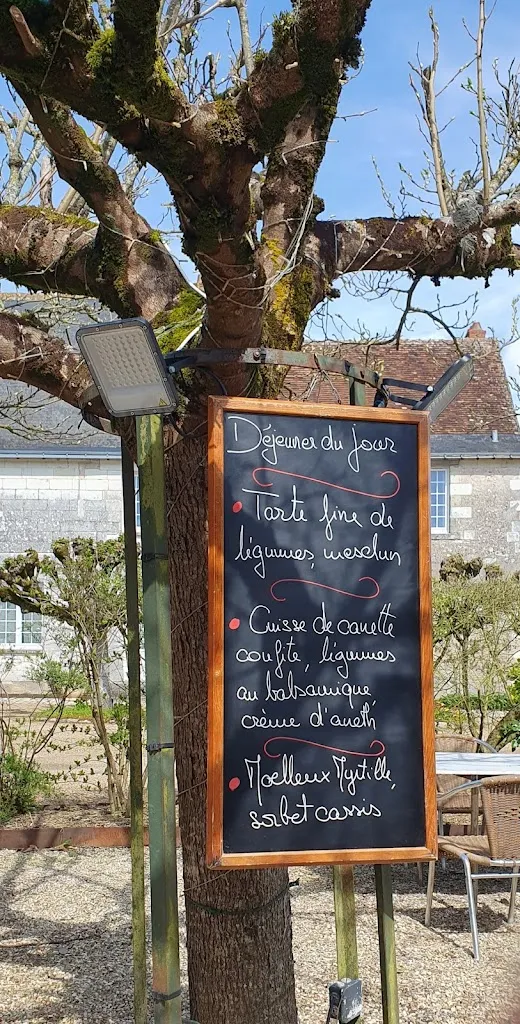 Déjeuner du jour
Tarte fine de
légumes, mesclun
Cuisse de canette
confite, légumes
au balsamique,
crème d'aneth
Moelleux Myrtille,
sorbet cassis